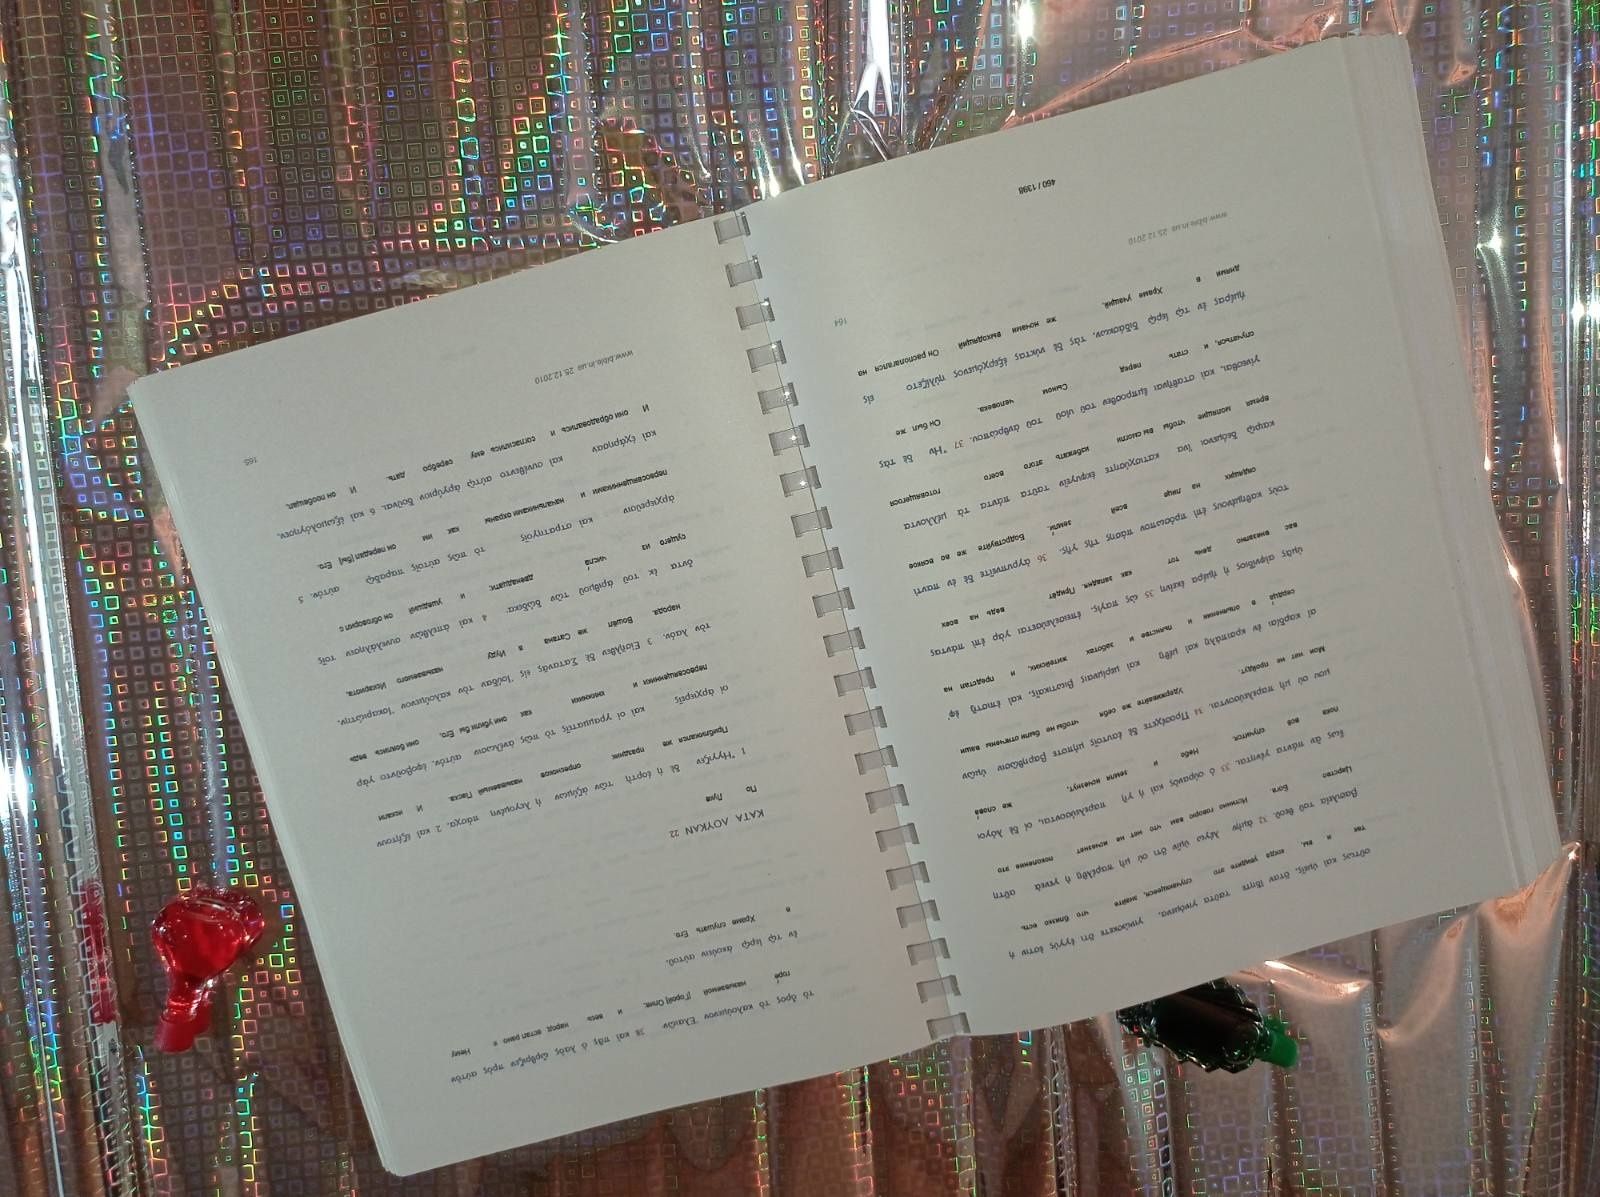 οὕτως καὶ ὑμεῖς, ὅταν ἴδητε ταῦτα γινόμενα, γινώσκετε ὅτι ἐγγύς ἐστιν ἡ
так и вы, когда увидите это случающееся, знайте, что близко есть
βασιλεία τοῦ θεοῦ. 32 ἀμὴν λέγω ὑμῖν ὅτι οὐ μὴ παρέλθῃ ἡ γενεὰ αὕτη
Царство Бога. Истинно говорю вам что нет не исчезнет поколение это
ἕως ἂν πάντα γένηται. 33 ὁ οὐρανὸς καὶ ἡ γῆ παρελεύσονται, οἱ δὲ λόγοι
пока всё случится. Небо и земля исчезнут, же слова
μου οὐ μὴ παρελεύσονται. 34 Προσέχετε δὲ ἑαυτοῖς μήποτε βαρηθῶσιν ὑμῶν
Мои нет не пройдут. Удерживайте же себя чтобы не были отягчены ваши
αἱ καρδίαι ἐν κραιπάλῃ καὶ μέθῃ καὶ μερίμναις βιωτικαῖς, καὶ ἐπιστῇ ἐφ'
сердца́ в опьянении и пьянстве и заботах житейских, и предстал на
ὑμᾶς αἰφνίδιος ἡ ἡμέρα ἐκείνη 35 ὡς παγίς· ἐπεισελεύσεται γὰρ ἐπὶ πάντας
вас внезапно день тот как западня. Придёт ведь на всех
τοὺς καθημένους ἐπὶ πρόσωπον πάσης τῆς γῆς. 36 ἀγρυπνεῖτε δὲ ἐν παντὶ
сидящих на лице всей земли́. Бодрствуйте же во всякое
καιρῷ δεόμενοι ἵνα κατισχύσητε ἐκφυγεῖν ταῦτα πάντα τὰ μέλλοντα
время молящие чтобы вы смогли избежать этого всего готовящегося
γίνεσθαι, καὶ σταθῆναι ἔμπροσθεν τοῦ υἱοῦ τοῦ ἀνθρώπου. 37 Ἦν δὲ τὰς
случаться, и стать перед Сыном человека. Он был же
ἡμέρας ἐν τῷ ἱερῷ διδάσκων, τὰς δὲ νύκτας ἐξερχόμενος ηὐλίζετο εἰς
днями в Храме учащий, же ночами выходящий Он располагался на
164
www.bible.in.ua 25.12.2010
460 / 1398
τὸ ὄρος τὸ καλούμενον Ἐλαιῶν· 38 καὶ πᾶς ὁ λαὸς ὤρθριζεν πρὸς αὐτὸν
горе́ называемой [Горой] Олив; и весь народ встал рано к Нему
ἐν τῷ ἱερῷ ἀκούειν αὐτοῦ.
в Храме слушать Его.
ΚΑΤΑ ΛΟΥΚΑΝ 22
По Луке
1 Ἤγγιζεν δὲ ἡ ἑορτὴ τῶν ἀζύμων ἡ λεγομένη πάσχα. 2 καὶ ἐζήτουν
Приближался же праздник опресноков называемый Пасха. И искали
οἱ ἀρχιερεῖς καὶ οἱ γραμματεῖς τὸ πῶς ἀνέλωσιν αὐτόν, ἐφοβοῦντο γὰρ
первосвященники и книжники как они убили бы Его, они боялись ведь
τὸν λαόν. 3 Εἰσῆλθεν δὲ Σατανᾶς εἰς Ἰούδαν τὸν καλούμενον Ἰσκαριώτην,
народа. Вошёл же Сатана в Иуду называемого Искариота,
ὄντα ἐκ τοῦ ἀριθμοῦ τῶν δώδεκα· 4 καὶ ἀπελθὼν συνελάλησεν τοῖς
сущего из числа́ двенадцати; и ушедший он обговорил с
ἀρχιερεῦσιν καὶ στρατηγοῖς τὸ πῶς αὐτοῖς παραδῷ αὐτόν. 5
первосвященниками и начальниками охраны как им он передал [бы] Его.
καὶ ἐχάρησαν καὶ συνέθεντο αὐτῷ ἀργύριον δοῦναι. 6 καὶ ἐξωμολόγησεν,
И они обрадовались и согласились ему серебро дать. И он пообещал,
165
www.bible.in.ua 25.12.2010